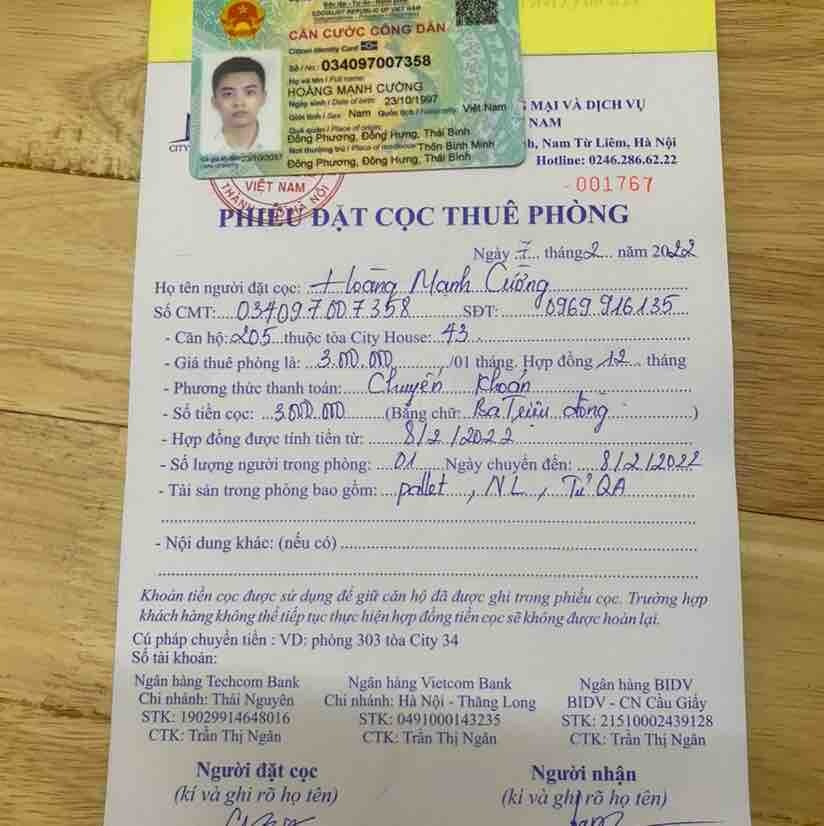 SOCIALIST REPUBLIC OF VIET NAM
CĂN CƯỚC CÔNG DÂN
Citizen Identity Card
Số / No.: 034097007358
Họ và tên / Full name:
HOÀNG MẠNH CƯỜNG
Ngày sinh / Date of birth: 23/10/1997
Giới tính / Sex: Nam Quốc tịch / Nationality: Việt Nam
Quê quán / Place of origin:
Đông Phương, Đông Hưng, Thái Bình
Nơi thường trú / Place of residence: Thôn Bình Minh
Đông Phương, Đông Hưng, Thái Bình
MẠI VÀ DỊCH VỤ
NAM
CITY
h, Nam Từ Liêm, Hà Nội
Hotline: 0246.286.62.22
001767
VIỆT NAM
THÀNH HÀ NỘI
PHIẾU ĐẶT CỌC THUÊ PHÒNG
Ngày 7 tháng 2 năm 2022
Họ tên người đặt cọc: Hoàng Mạnh Cường
Số CMT: 034097007358 SĐT: 0969916135
- Căn hộ: 205 thuộc tòa City House: 43
- Giá thuê phòng là: 3.000.000 /01 tháng. Hợp đồng 12 tháng
- Phương thức thanh toán: Chuyển Khoản
- Số tiền cọc: 3000.000 (Bằng chữ: Ba Triệu đồng )
- Hợp đồng được tính tiền từ: 8/2/2022
- Số lượng người trong phòng: 01 Ngày chuyển đến: 8/2/2022
- Tài sản trong phòng bao gồm: pallet, NL, Tủ QA
- Nội dung khác: (nếu có)
Khoản tiền cọc được sử dụng để giữ căn hộ đã được ghi trong phiếu cọc. Trường hợp
khách hàng không thể tiếp tục thực hiện hợp đồng tiền cọc sẽ không được hoàn lại.
Cú pháp chuyển tiền : VD: phòng 303 tòa City 34
Số tài khoản:
Ngân hàng Techcom Bank
Chi nhánh: Thái Nguyên
STK: 19029914648016
CTK: Trần Thị Ngân
Ngân hàng Vietcom Bank
Chi nhánh: Hà Nội - Thăng Long
STK: 0491000143235
CTK: Trần Thị Ngân
Ngân hàng BIDV
BIDV - CN Cầu Giấy
STK: 21510002439128
CTK: Trần Thị Ngân
Người đặt cọc
(kí và ghi rõ họ tên)
Người nhận
(kí và ghi rõ họ tên)